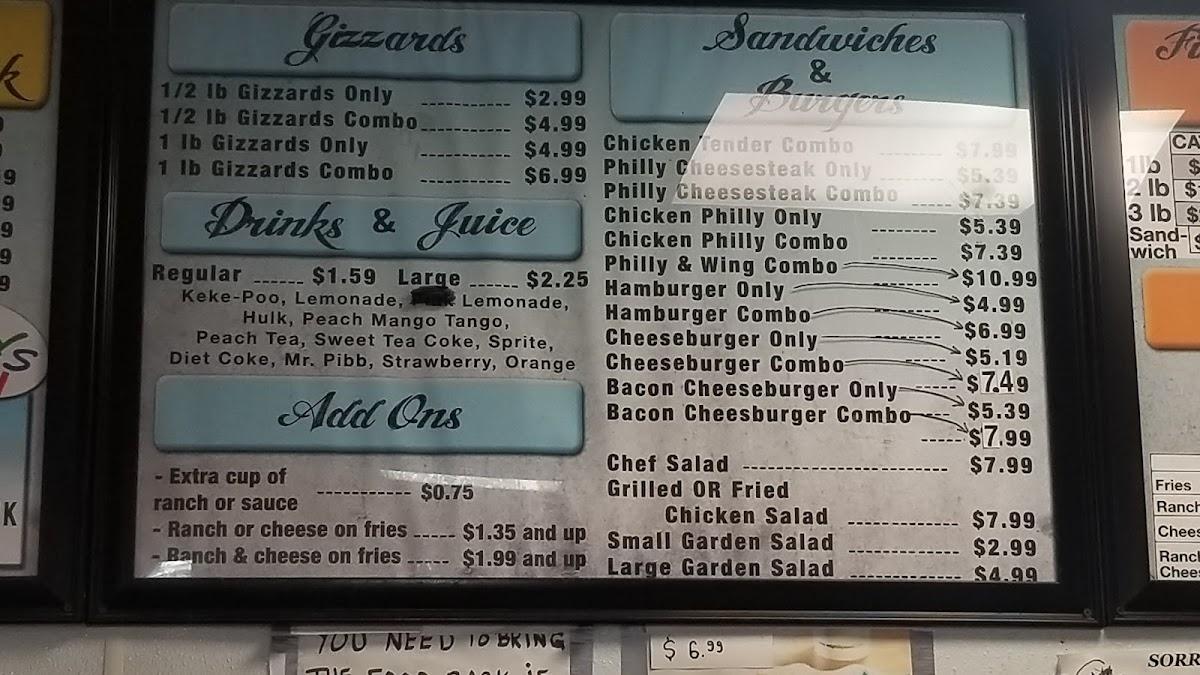 Gizzards
1/2 lb Gizzards Only $2.99
1/2 lb Gizzards Combo $4.99
1 lb Gizzards Only $4.99
1 lb Gizzards Combo $6.99
Drinks & Juice
Regular $1.59 Large $2.25
Keke-Poo, Lemonade, Lemonade,
Hulk, Peach Mango Tango,
Peach Tea, Sweet Tea Coke, Sprite,
Diet Coke, Mr. Pibb, Strawberry, Orange
Add Ons
- Extra cup of
ranch or sauce $0.75
- Ranch or cheese on fries $1.35 and up
- Ranch & cheese on fries $1.99 and up
Sandwiches
&
Burgers
Chicken Tender Combo $7.99
Philly Cheesesteak Only $5.39
Philly Cheesesteak Combo $7.39
Chicken Philly Only $5.39
Chicken Philly Combo $7.39
Philly & Wing Combo $10.99
Hamburger Only $4.99
Hamburger Combo $6.99
Cheeseburger Only $5.19
Cheeseburger Combo $7.49
Bacon Cheeseburger Only $5.39
Bacon Cheesburger Combo $7.99
Chef Salad $7.99
Grilled OR Fried
Chicken Salad $7.99
Small Garden Salad $2.99
Large Garden Salad $4.99
1lb $
2 lb $
3 lb $
Sand-
wich
Fries
YOU NEED TO BRING
$ 6.99